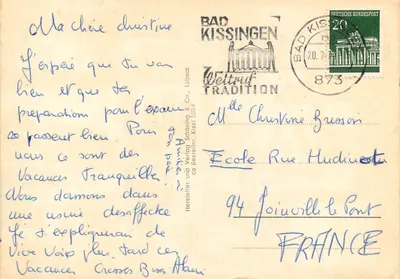 Ma chère Christine
J'espère que tu vas
bien et que tes
préparations pour l'examen
se passent bien. Pour
nous ce sont des
Vacances Tranquilles
Nous dansons dans
une usine désaffectée
Je t'expliquerai de
Vive Voix plus tard
Vacances Grosses Bises Alain
BAD
KISSINGEN
Weltruf
TRADITION
BAD KISSINGEN
20.7.
873
DEUTSCHE BUNDESPOST
20
Hersteller und Verlag Schöning & Co., Lübeck
Melle Christine Bresson
Ecole Rue
94 Joinville le Pont
FRANCE